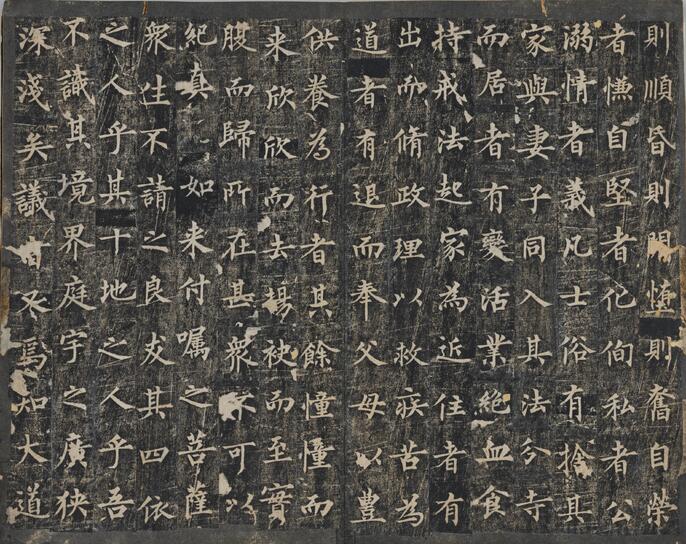 則順昏則開憜則奮自榮
者慊自堅者化徇私者公
溺情者義凡士俗有捨其
家與妻子同入其法分寺
而居者有變活業絕血食
持戒法起家為近住者有
出而脩政理以救疾苦為
道者有退而奉父母以豊
供養為行者其餘憧憧而
来欣欣而去揚袂而至實
腹而歸所在甚衆不可以
紀真如来付囑之菩薩
衆生不請之良友其四依
之人乎其十地之人乎吾
不識其境界庭宇之廣狹
深淺矣議者又焉知大道